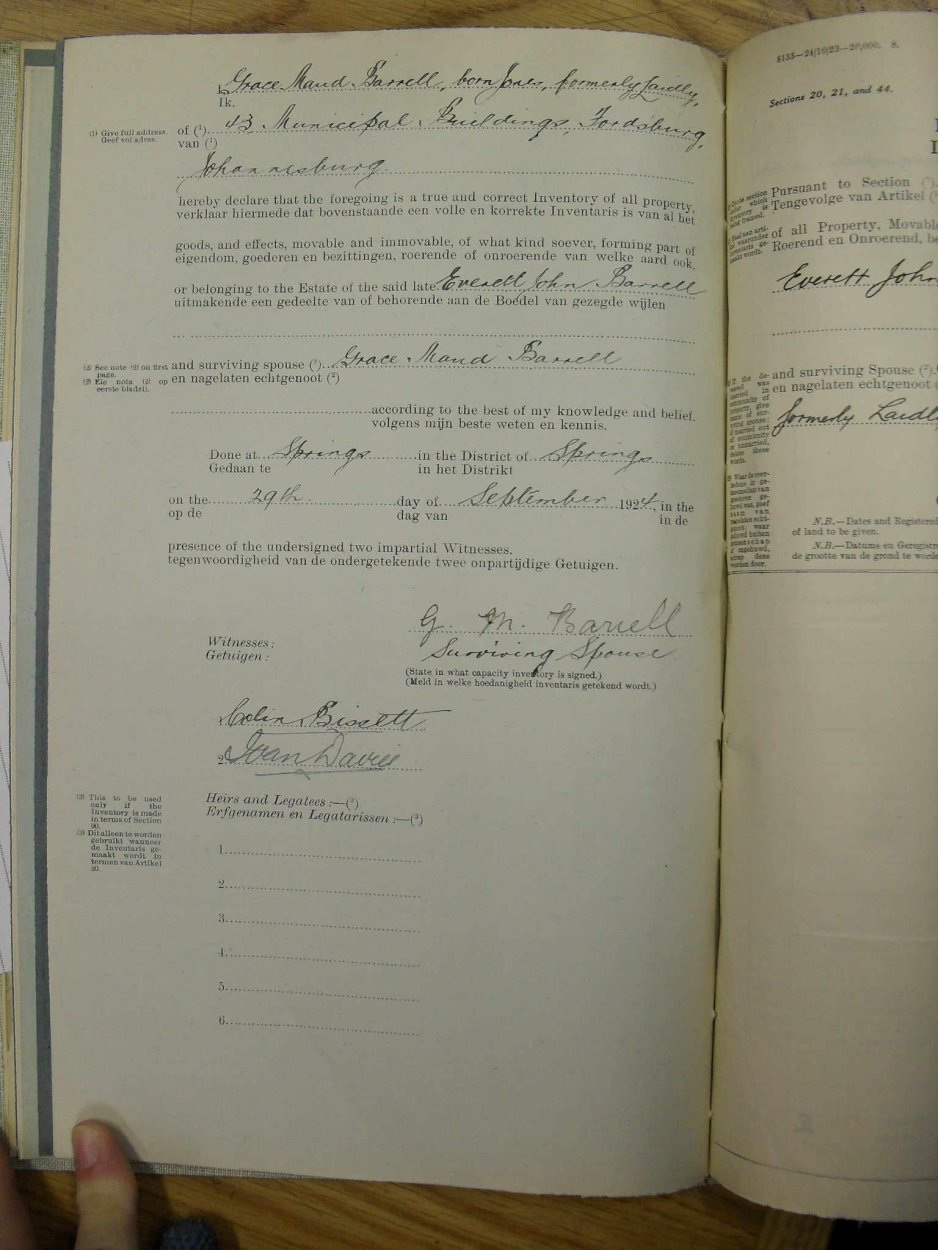 I, Grace Maud Barrell, born Jones, formerly Laidly,
Ik.
(1) Give full address.
Geef vol adres.
of (1) 43 Municipal Buildings, Fordsburg,
van (1)
Johannesburg
hereby declare that the foregoing is a true and correct Inventory of all property,
verklaar hiermede dat bovenstaande een volle en korrekte Inventaris is van al het
goods, and effects, movable and immovable, of what kind soever, forming part of
eigendom, goederen en bezittingen, roerende of onroerende van welke aard ook,
or belonging to the Estate of the said late Everett John Barrell
uitmakende een gedeelte van of behorende aan de Boedel van gezegde wijlen
(2) See note (2) on first page.
(2) Zie nota (2) op eerste bladzij.
and surviving spouse (2) Grace Maud Barrell
en nagelaten echtgenoot (2)
according to the best of my knowledge and belief.
volgens mijn beste weten en kennis.
Done at Springs in the District of Springs
Gedaan te in het Distrikt
on the 29th day of September 1924, in the
op de dag van in de
presence of the undersigned two impartial Witnesses.
tegenwoordigheid van de ondergetekende twee onpartijdige Getuigen.
G. M. Barrell
Witnesses:
Getuigen:
Surviving Spouse
(State in what capacity inventory is signed.)
(Meld in welke hoedanigheid inventaris getekend wordt.)
1 Colin Bissett
2 Ivan Davies
(3) This to be used
only if the
Inventory is made
in terms of Section
20.
(3) Dit alleen te worden
gebruikt wanneer
de Inventaris ge-
maakt wordt in
termen van Artikel
20.
Heirs and Legatees:—(3)
Erfgenamen en Legatarissen:—(3)
1
2
3
4
5
6
8133—24/10/23—20,000. S.
Sections 20, 21, and 44.
Pursuant to Section (1)
Tengevolge van Artikel (
of all Property, Movabl
Roerend en Onroerend, be
Everett John
and surviving Spouse (2)
en nagelaten echtgenoot (
formerly Laidl
N.B.—Dates and Registered
of land to be given.
N.B.—Datums en Geregistr
de grootte van de grond te worde